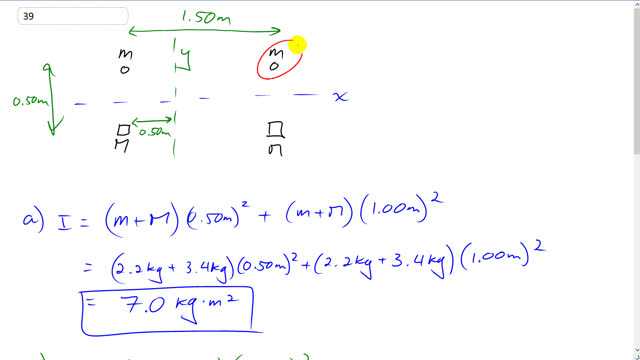 39
1.50m
m y m
0.50m
x
0.50m
M M
a) I = (m+M)(0.50m)² + (m+M)(1.00m)²
= (2.2kg + 3.4kg)(0.50m)² + (2.2kg + 3.4kg)(1.00m)²
= 7.0 kg·m²